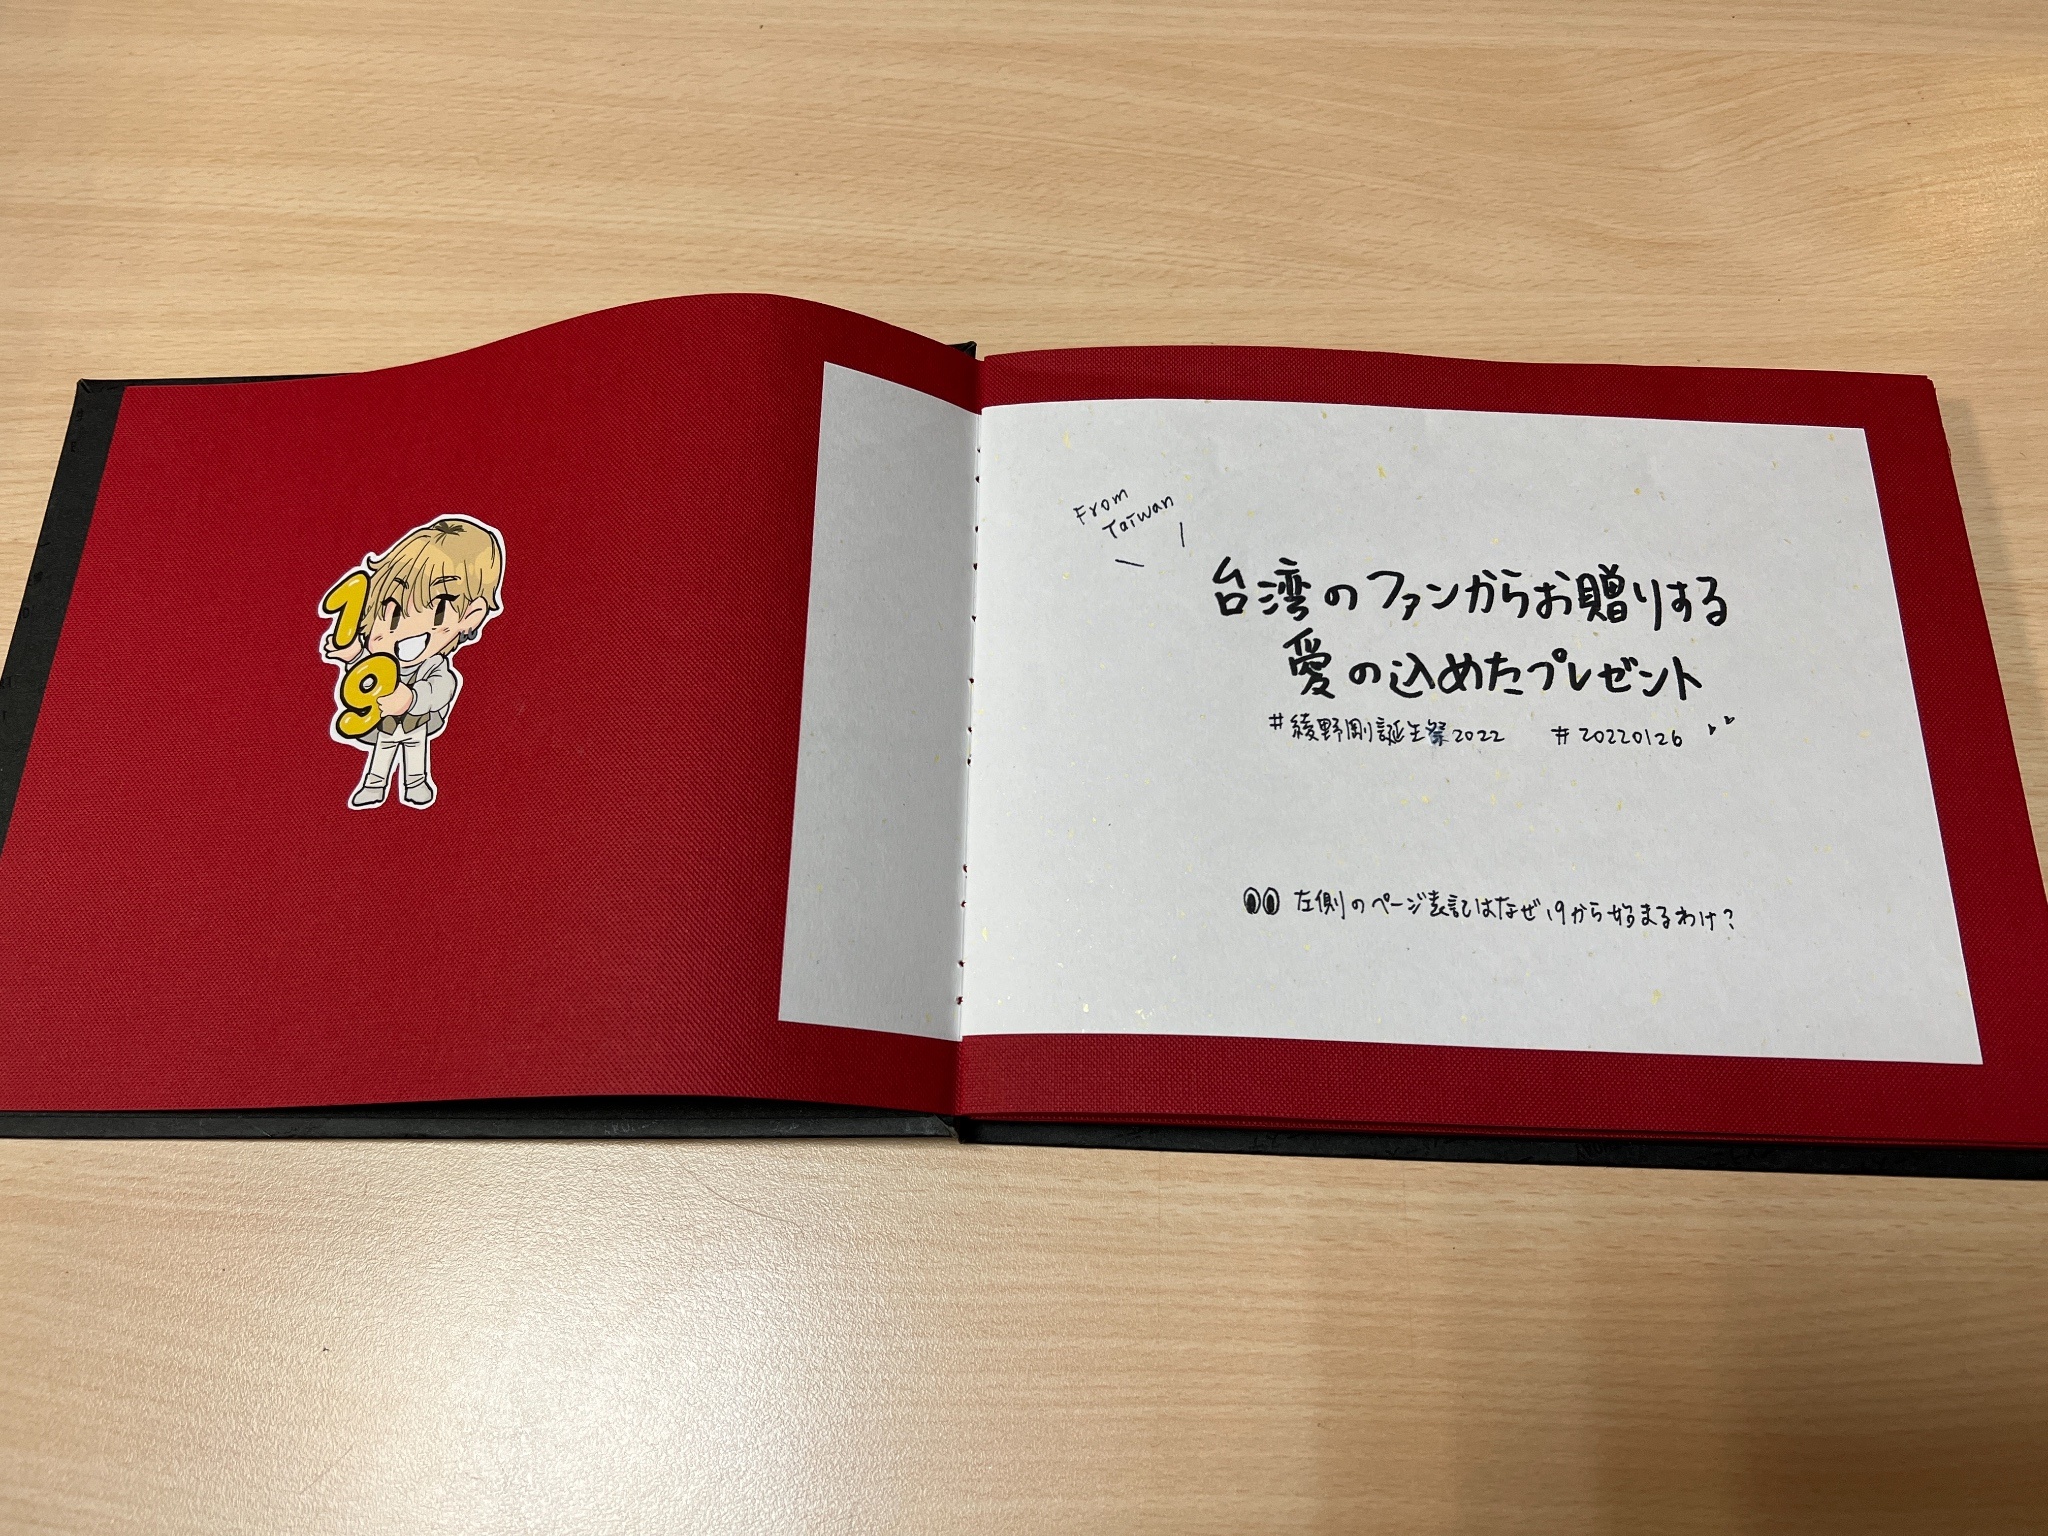 19
From
Taiwan
台湾のファンからお贈りする
愛の込めたプレゼント
#綾野剛誕生祭2022 #20220126
左側のページ表記はなぜ19から始まるわけ?